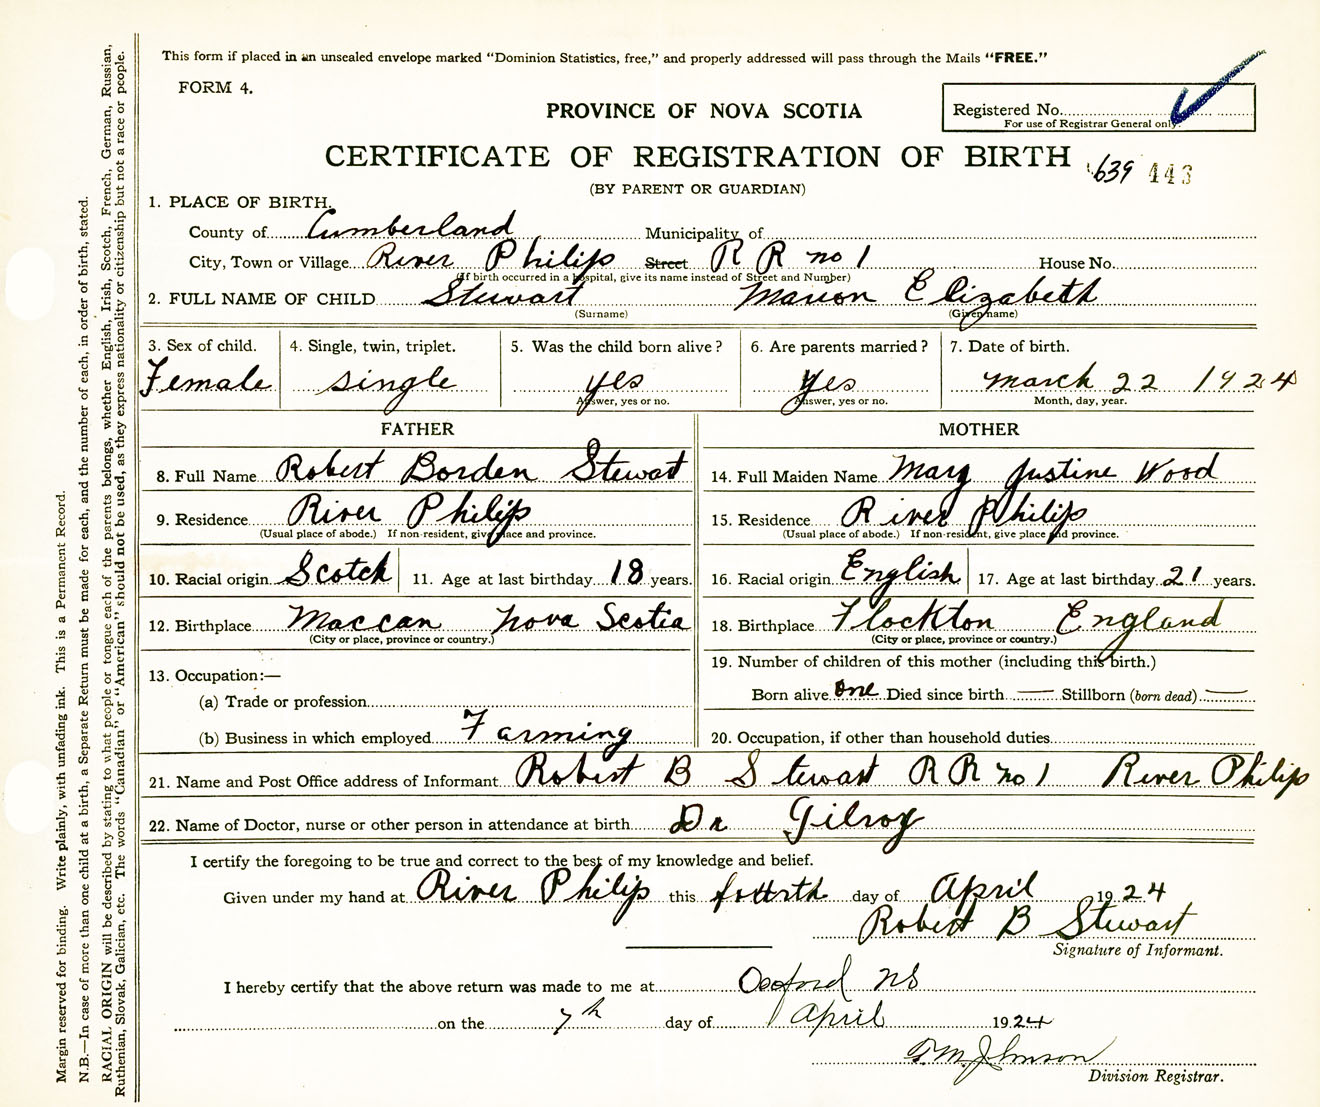 This form if placed in an unsealed envelope marked "Dominion Statistics, free," and properly addressed will pass through the Mails "FREE."
FORM 4.
PROVINCE OF NOVA SCOTIA
Registered No.
For use of Registrar General only.
CERTIFICATE OF REGISTRATION OF BIRTH
639 443
(BY PARENT OR GUARDIAN)
1. PLACE OF BIRTH.
County of Cumberland Municipality of
City, Town or Village River Philip Street R R no 1 House No.
(If birth occurred in a hospital, give its name instead of Street and Number)
2. FULL NAME OF CHILD Stewart Marion Elizabeth
(Surname) (Given name)
3. Sex of child. 4. Single, twin, triplet. 5. Was the child born alive? 6. Are parents married? 7. Date of birth.
Female single yes Yes March 22 1924
Answer, yes or no. Answer, yes or no. Month, day, year.
FATHER MOTHER
8. Full Name Robert Borden Stewart 14. Full Maiden Name Mary Justine Wood
9. Residence River Philip 15. Residence River Philip
(Usual place of abode.) If non-resident, give place and province. (Usual place of abode.) If non-resident, give place and province.
10. Racial origin Scotch 11. Age at last birthday 18 years. 16. Racial origin English 17. Age at last birthday 21 years.
12. Birthplace Maccan Nova Scotia 18. Birthplace Flockton England
(City or place, province or country.) (City or place, province or country.)
13. Occupation:— 19. Number of children of this mother (including this birth.)
(a) Trade or profession Born alive one Died since birth — Stillborn (born dead) —
(b) Business in which employed Farming 20. Occupation, if other than household duties
21. Name and Post Office address of Informant Robert B Stewart R R no 1 River Philip
22. Name of Doctor, nurse or other person in attendance at birth Dr Gilroy
I certify the foregoing to be true and correct to the best of my knowledge and belief.
Given under my hand at River Philip this fourth day of April 1924
Robert B Stewart
Signature of Informant.
I hereby certify that the above return was made to me at Oxford NS
on the 7th day of April 1924
Johnson
Division Registrar.
Margin reserved for binding. Write plainly, with unfading ink. This is a Permanent Record.
N.B.—In case of more than one child at a birth, a Separate Return must be made for each, and the number of each, in order of birth, stated.
RACIAL ORIGIN will be described by stating to what people or tongue each of the parents belongs, whether English, Irish, Scotch, French, German, Russian,
Ruthenian, Slovak, Galician, etc. The words "Canadian" or "American" should not be used, as they express nationality or citizenship but not a race or people.